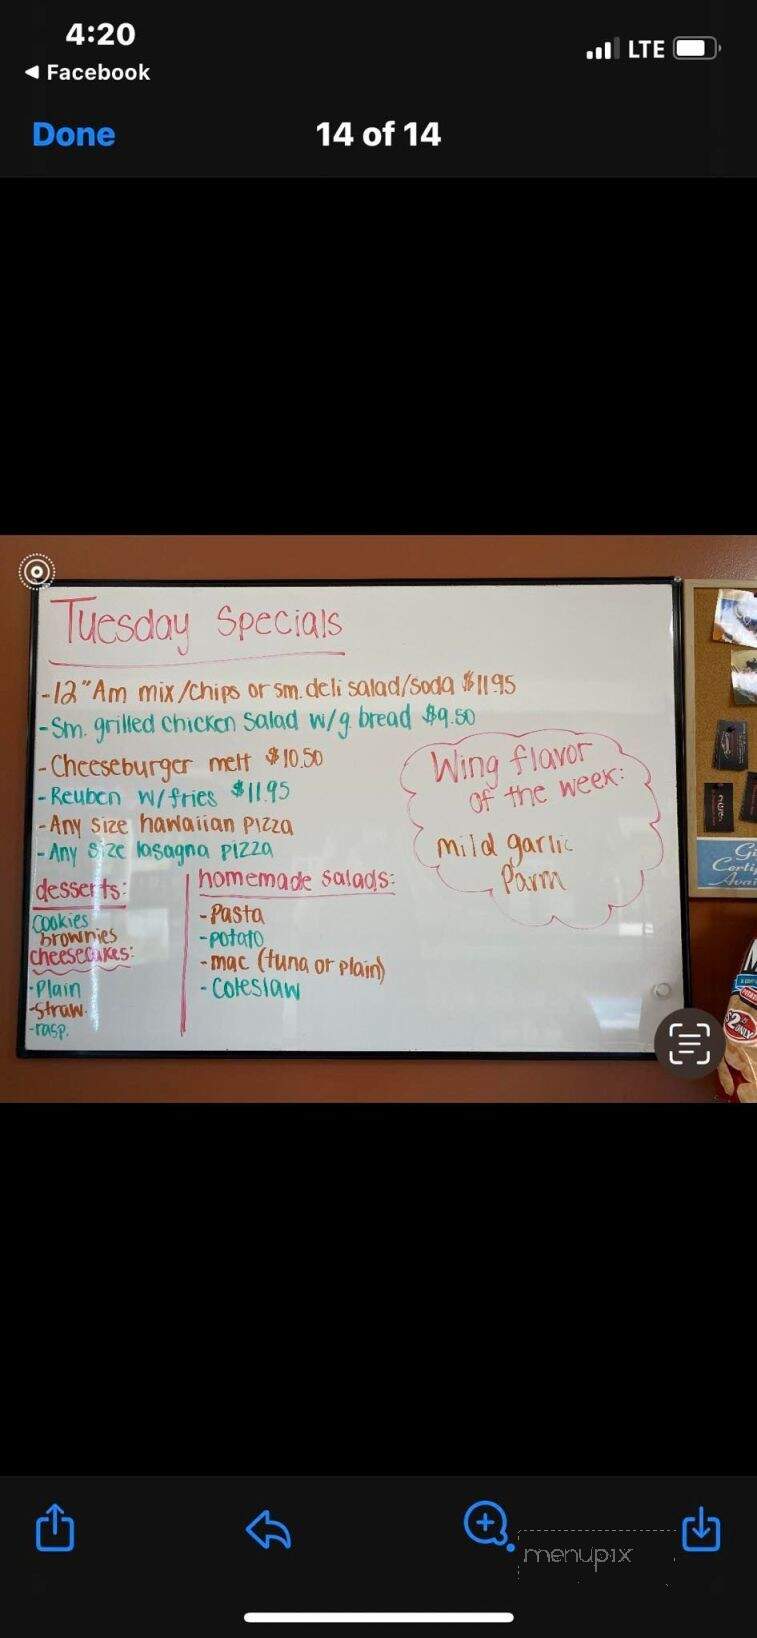 4:20
LTE
◀ Facebook
Done
14 of 14
Tuesday Specials
-12" Am mix/chips or sm. deli salad/soda $11.95
-Sm. grilled chicken salad w/g. bread $9.50
-Cheeseburger melt $10.50
-Reuben w/fries $11.95
-Any size hawaiian pizza
-Any size lasagna pizza
Wing flavor
of the week:
mild garlic
Parm
desserts:
cookies
brownies
cheesecakes:
-Plain
-straw.
-rasp.
homemade salads:
-Pasta
-potato
-mac (tuna or plain)
-Coleslaw
Gi
Certif
Avai
$2 ONLY
menupix